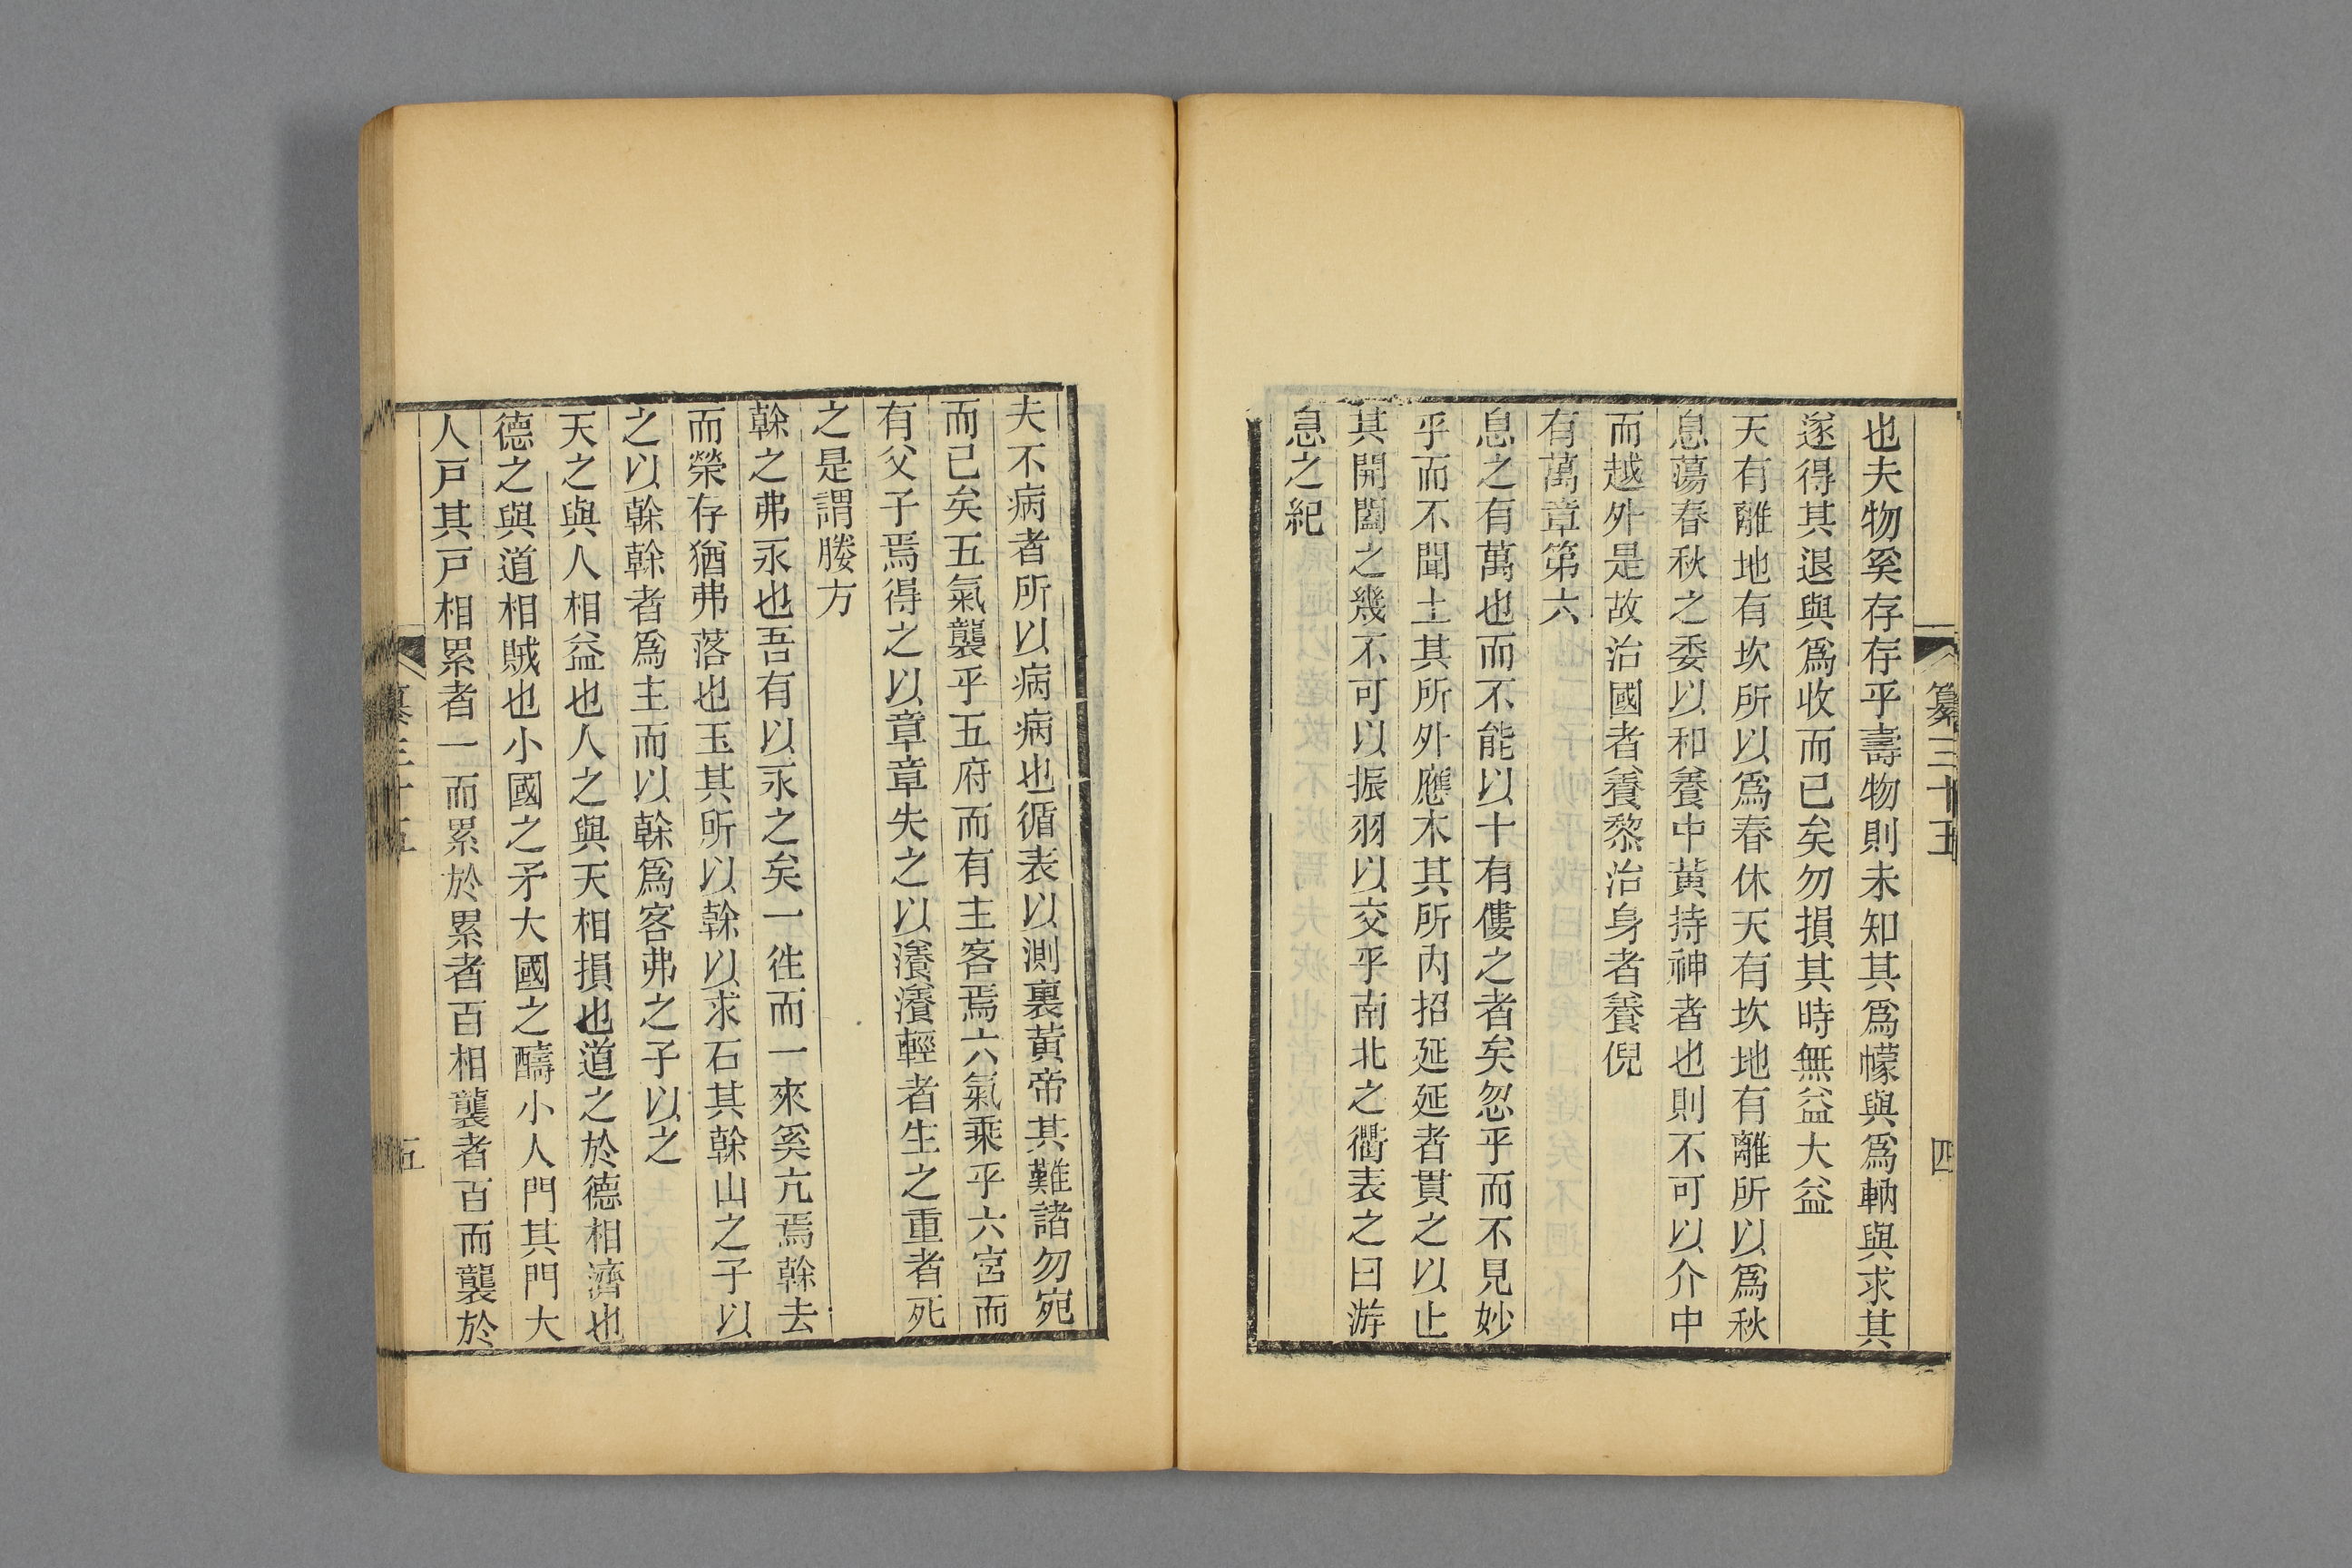 纂三十五
四
也夫物奚存存乎壽物則未知其爲幪與爲軜與求其
遂得其退與爲收而已矣勿損其時無益大益
天有離地有坎所以爲春休天有坎地有離所以爲秋
息蕩春秋之委以和養中黃持神者也則不可以介中
而越外是故治國者養黎治身者養倪
有萬章第六
息之有萬也而不能以十有僂之者矣忽乎而不見妙
乎而不聞土其所外應木其所內招延延者貫之以止
其開闔之幾不可以振羽以交乎南北之衢表之曰游
息之紀
夫不病者所以病病也循表以測裏黃帝其難諸勿宛
而已矣五氣襲乎五府而有主客焉六氣乘乎六宮而
有父子焉得之以章章失之以瀁瀁輕者生之重者死
之是謂媵方
榦之弗永也吾有以永之矣一徃而一來奚亢焉榦去
而榮存猶弗落也玉其所以榦以求石其榦山之子以
之以榦榦者爲主而以榦爲客弗之子以之
天之與人相益也人之與天相損也道之於德相濟也
德之與道相賊也小國之矛大國之醻小人門其門大
人戸其戸相累者一而累於累者百相襲者百而襲於
纂三十五
五